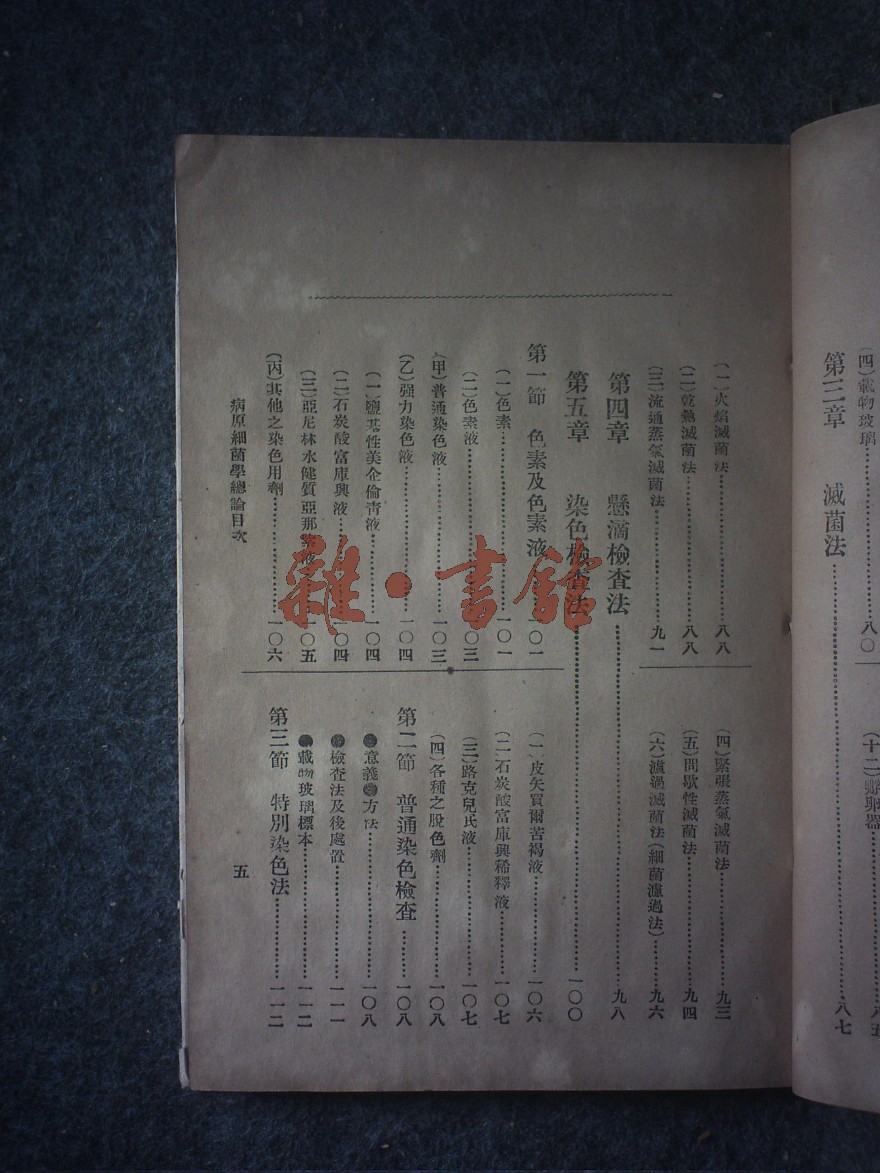 (四)載物玻璃……八〇
第三章 滅菌法……八七
(一)火焰滅菌法……八八
(二)乾熱滅菌法……八八
(三)流通蒸氣滅菌法……九一
(四)緊張蒸氣滅菌法……九三
(五)間歇性滅菌法……九四
(六)濾過滅菌法(細菌濾過法)……九六
第四章 懸滴檢查法……九八
第五章 染色檢查法……一〇〇
第一節 色素及色素液……一〇一
(一)色素……一〇一
(二)色素液……一〇三
(甲)普通染色液……一〇三
(乙)强力染色液……一〇四
(一)鹽基性美企倫靑液……一〇四
(二)石炭酸富庫興液……一〇四
(三)亞尼林水健質亞那液……一〇五
(丙)其他之染色用劑……一〇六
(一)皮矢賓爾苦褐液……一〇六
(二)石炭酸富庫興稀釋液……一〇七
(三)路克兒氏液……一〇七
(四)各種之脫色劑……一〇八
第二節 普通染色檢查……一〇八
●意義●方法……一〇八
●檢查法及後處置……一一一
●載物玻璃標本……一一二
第三節 特別染色法……一一二
病原細菌學總論目次
五
雜·書館